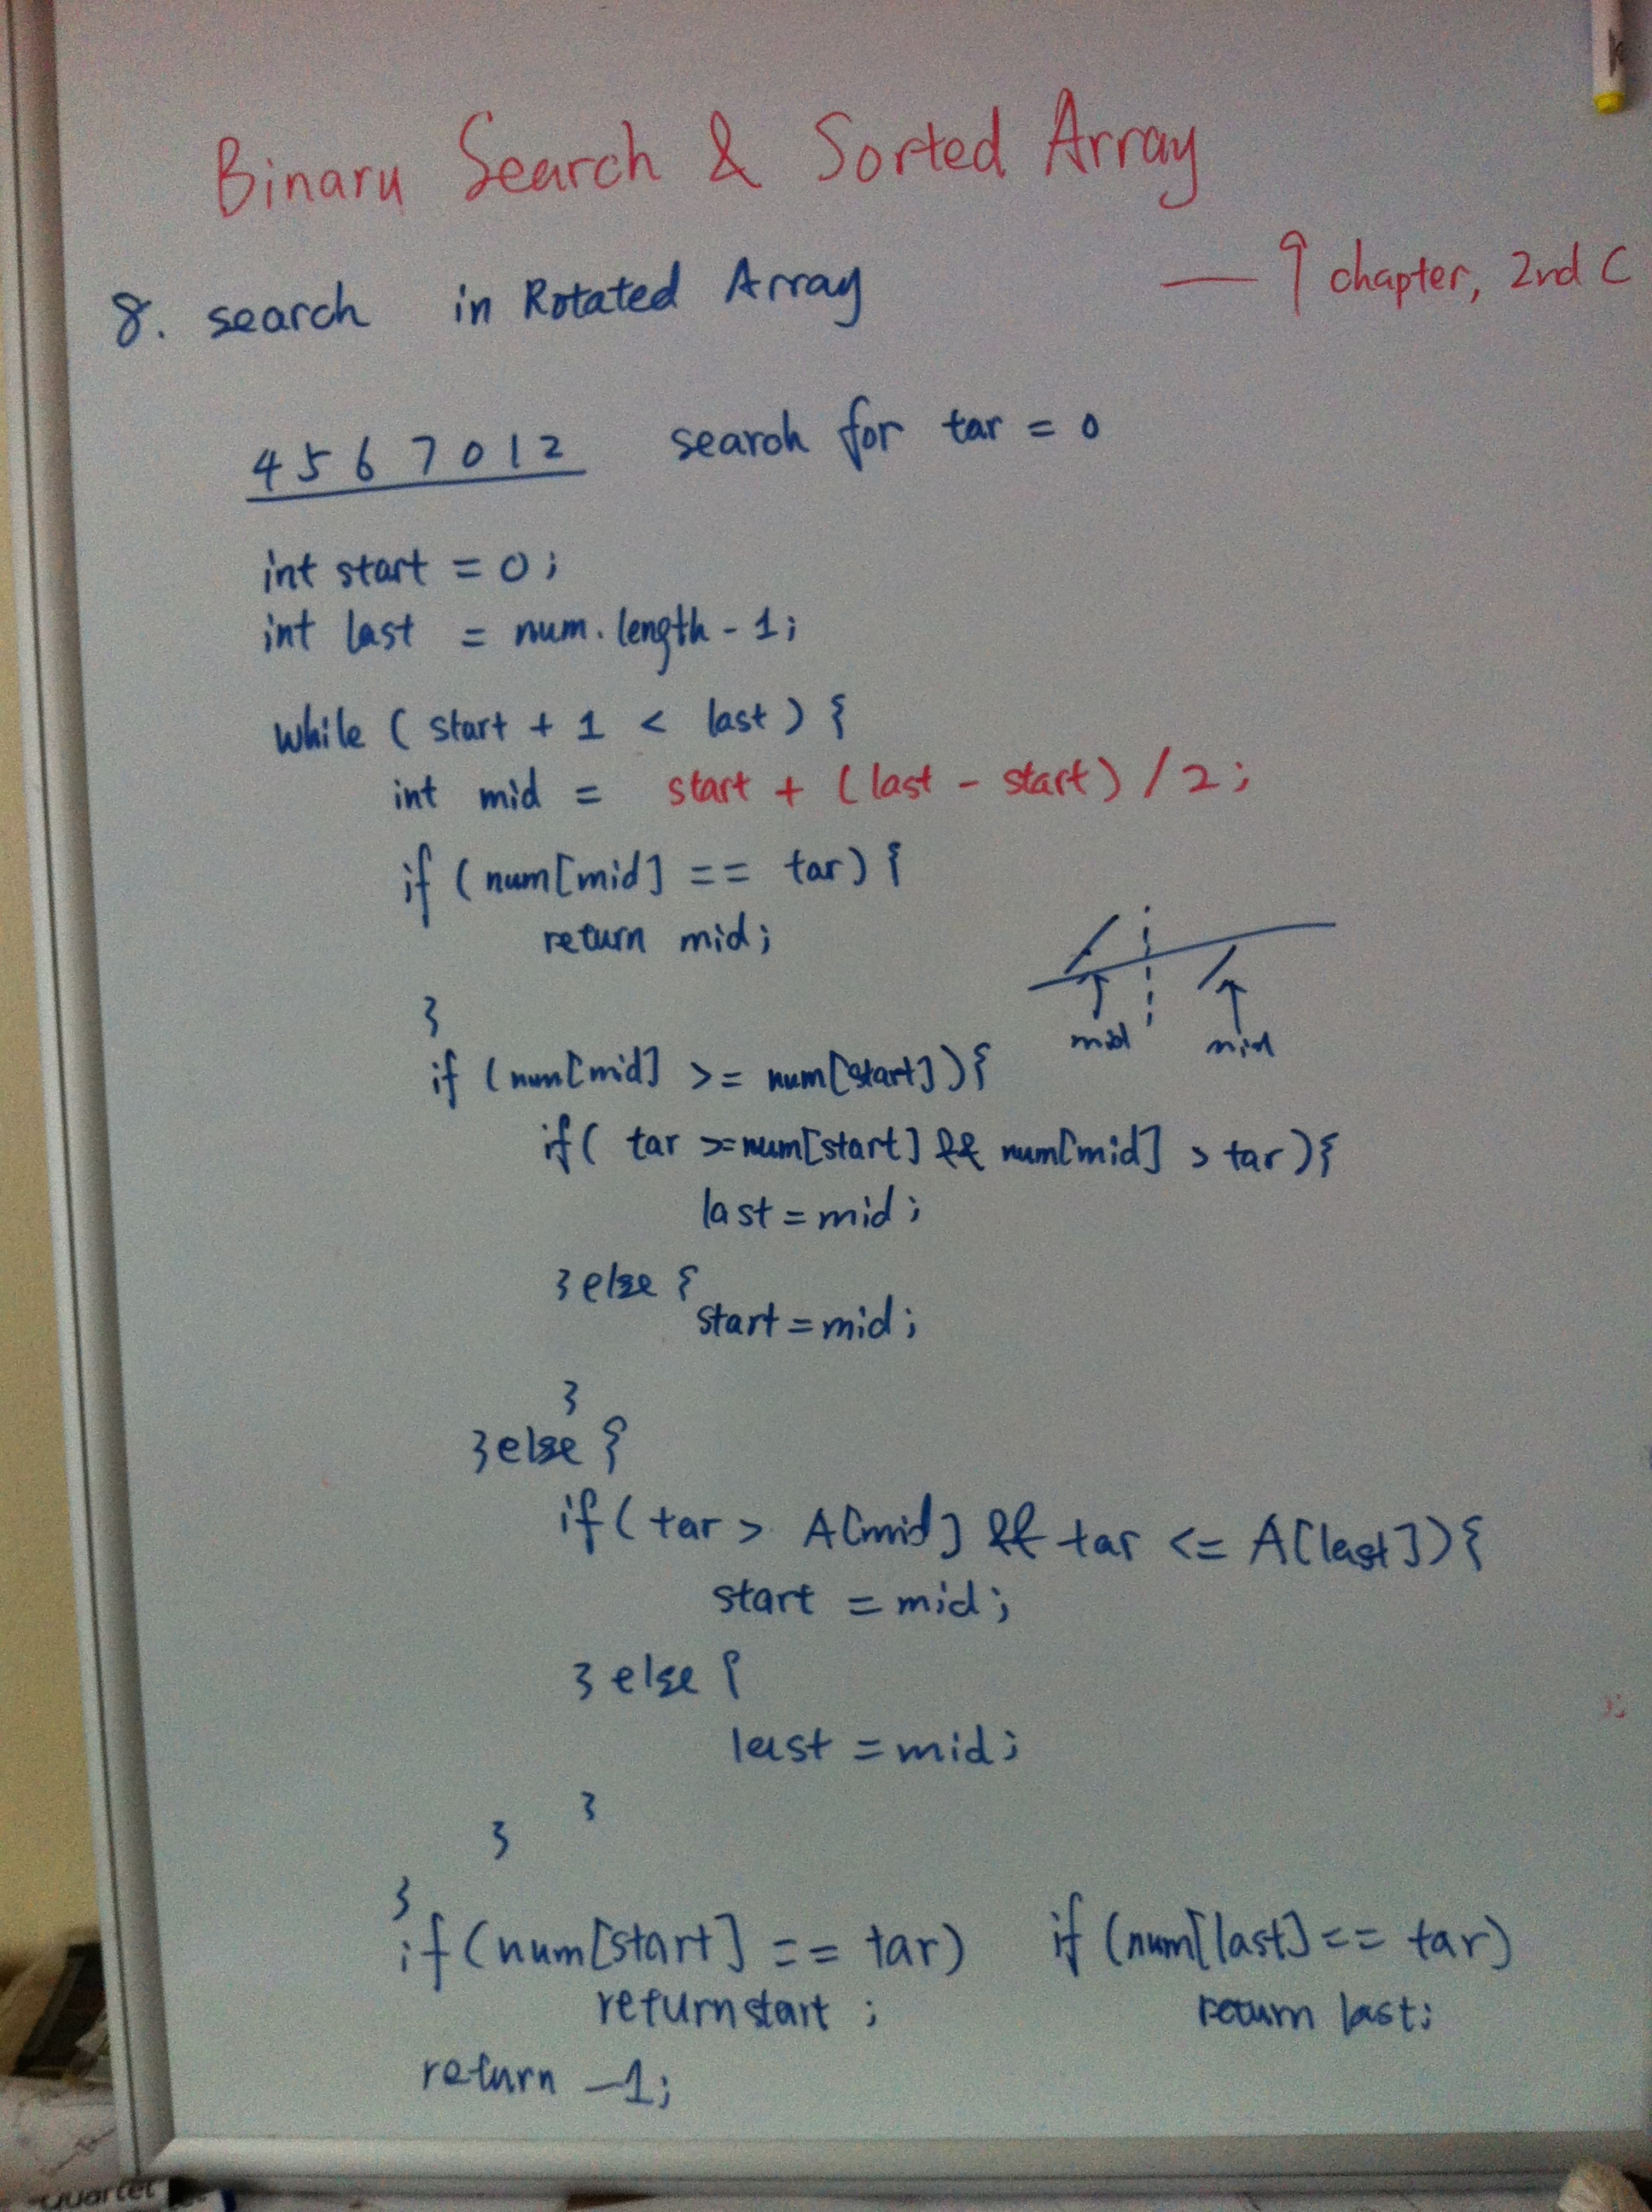 Binary Search & Sorted Array
— 9 chapter, 2nd C
8. search in Rotated Array
4 5 6 7 0 1 2 search for tar = 0
int start = 0;
int last = num.length - 1;
while (start + 1 < last) {
int mid = start + (last - start) / 2;
if (num[mid] == tar) {
return mid;
}
mid mid
if (num[mid] >= num[start]) {
if ( tar >= num[start] && num[mid] > tar) {
last = mid;
} else {
start = mid;
}
} else {
if ( tar > A[mid] && tar <= A[last]) {
start = mid;
} else {
last = mid;
}
}
}
if (num[start] == tar) if (num[last] == tar)
return start ; return last;
return -1;
Quartet